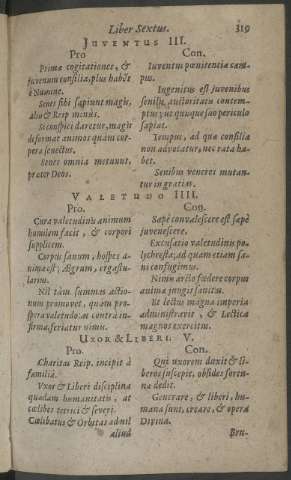 Liber Sextus. 319
JUVENTUS III.
Pro
Primæ cogitationes, &
juvenum consilia, plus habẽt
è Numine.
Senes sibi sapiunt magis,
aliis & Reip. minùs.
Si conspici daretur, magis
deformat animos quàm cor-
pora senectus.
Senes omnia metuunt,
præter Deos.
Con.
Juventus pœnitentiæ cam-
pus.
Ingenitus est juvenibus
senilis auctoritatis contem-
ptus; ut quisque suo periculo
sapiat.
Tempus, ad quæ consilia
non advocatur, nec rata ha-
bet.
Senibus veneres mutan-
tur in gratias.
VALETUDO IIII.
Pro.
Cura valetudinis animum
humilem facit, & corpori
supplicem.
Corpus sanum, hospes a-
nimæ est; Ægrum, ergastu-
larius.
Nil tàm summas actio-
num promovet, quàm pro-
spera valetudo: at contrà in-
firma, feriatur nimis.
Con.
Sæpè convalescere est sæpè
juvenescere.
Excusatio valetudinis po-
lychresta; ad quam etiam sa-
ni confugimus.
Nimis arcto fœdere corpus
animæ jungit sanitas.
Et lectus magna imperia
administravit, & Lectica
magnos exercitus.
UXOR & LIBERI. V.
Pro.
Charitas Reip. incipit à
familiâ.
Uxor & Liberi disciplina
quædam humanitatis, at
cælibes tetrici & severi.
Cælibatus & Orbitas ad nil
aliud
Con.
Qui uxorem duxit & li-
beros suscepit, obsides fortu-
næ dedit.
Generare, & liberi, hu-
mana sunt, creare, & opera
Divina.
Bru-